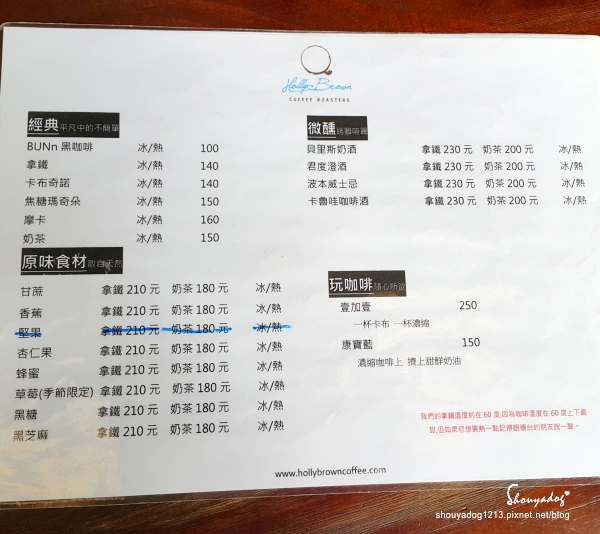 Holly Brown
COFFEE ROASTERS
經典 平凡中的不簡單
BUNn 黑咖啡 冰/熱 100
拿鐵 冰/熱 140
卡布奇諾 冰/熱 140
焦糖瑪奇朵 冰/熱 150
摩卡 冰/熱 160
奶茶 冰/熱 150
原味食材 取自天然
甘蔗 拿鐵 210 元 奶茶 180 元 冰/熱
香蕉 拿鐵 210 元 奶茶 180 元 冰/熱
堅果 拿鐵 210 元 奶茶 180 元 冰/熱
杏仁果 拿鐵 210 元 奶茶 180 元 冰/熱
蜂蜜 拿鐵 210 元 奶茶 180 元 冰/熱
草莓(季節限定) 拿鐵 210 元 奶茶 180 元 冰/熱
黑糖 拿鐵 210 元 奶茶 180 元 冰/熱
黑芝麻 拿鐵 210 元 奶茶 180 元 冰/熱
微醺
貝里斯奶酒 拿鐵 230 元 奶茶 200 元 冰/熱
君度澄酒 拿鐵 230 元 奶茶 200 元 冰/熱
波本威士忌 拿鐵 230 元 奶茶 200 元 冰/熱
卡魯哇咖啡酒 拿鐵 230 元 奶茶 200 元 冰/熱
玩咖啡 隨心所欲
壹加壹 250
一杯卡布 一杯濃縮
康寶藍 150
濃縮咖啡上 擠上甜鮮奶油
我們的拿鐵溫度約在 60 度,因為咖啡溫度在 60 度上下最
甜,但如果您想要熱一點記得跟櫃台的朋友說一聲。
www.hollybrowncoffee.com
Shouyadog
shouyadog1213.pixnet.net/blog